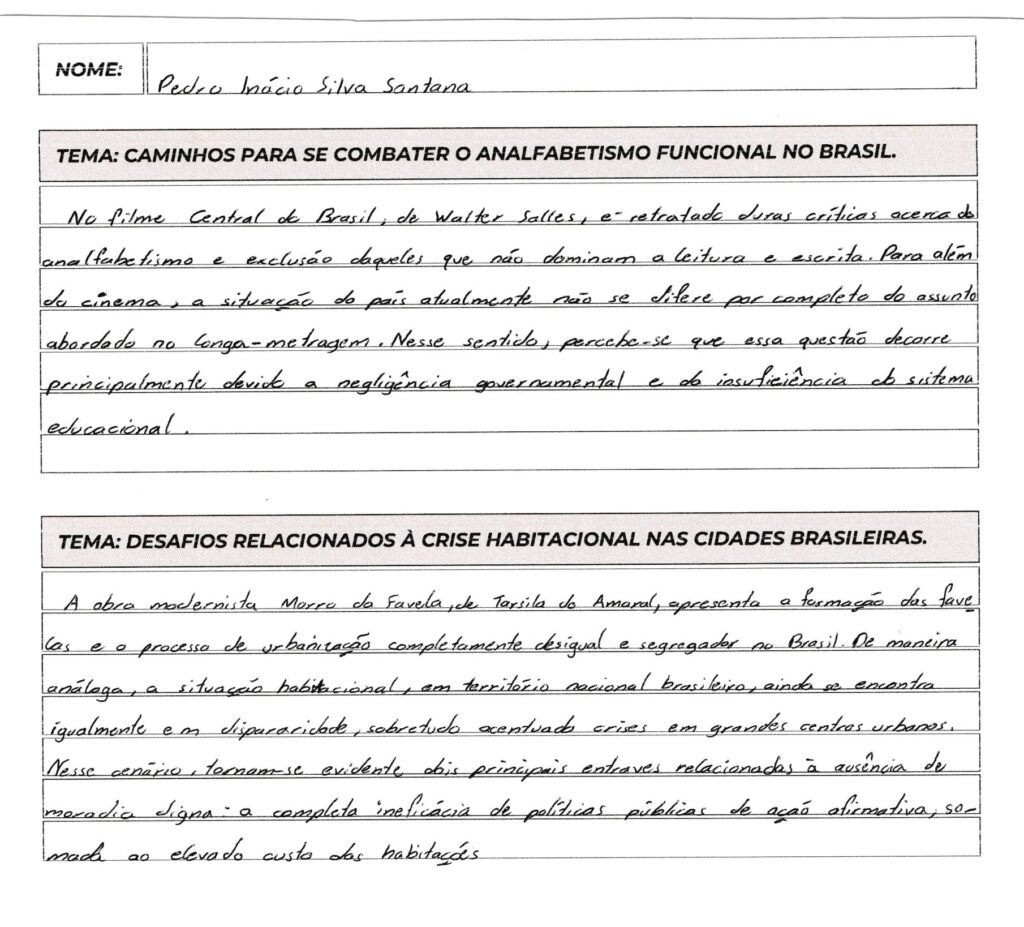 NOME:
Pedro Inácio Silva Santana
TEMA: CAMINHOS PARA SE COMBATER O ANALFABETISMO FUNCIONAL NO BRASIL.
No filme Central do Brasil, de Walter Salles, é retratado duras críticas acerca do
analfabetismo e exclusão daqueles que não dominam a leitura e escrita. Para além
do cinema, a situação do país atualmente não se difere por completo do assunto
abordado no longa-metragem. Nesse sentido, percebe-se que essa questão decorre
principalmente devido a negligência governamental e da insuficiência do sistema
educacional.
TEMA: DESAFIOS RELACIONADOS À CRISE HABITACIONAL NAS CIDADES BRASILEIRAS.
A obra modernista Morro da Favela, de Tarsila do Amaral, apresenta a formação das fave
las e o processo de urbanização completamente desigual e segregador no Brasil. De maneira
análoga, a situação habitacional, em território nacional brasileiro, ainda se encontra
igualmente em dispararidade, sobretudo acentuado crises em grandes centros urbanos.
Nesse cenário, tornam-se evidente dois principais entraves relacionados à ausência de
moradia digna: a completa ineficácia de políticas públicas de ação afirmativa, so-
mada ao elevado custo das habitações